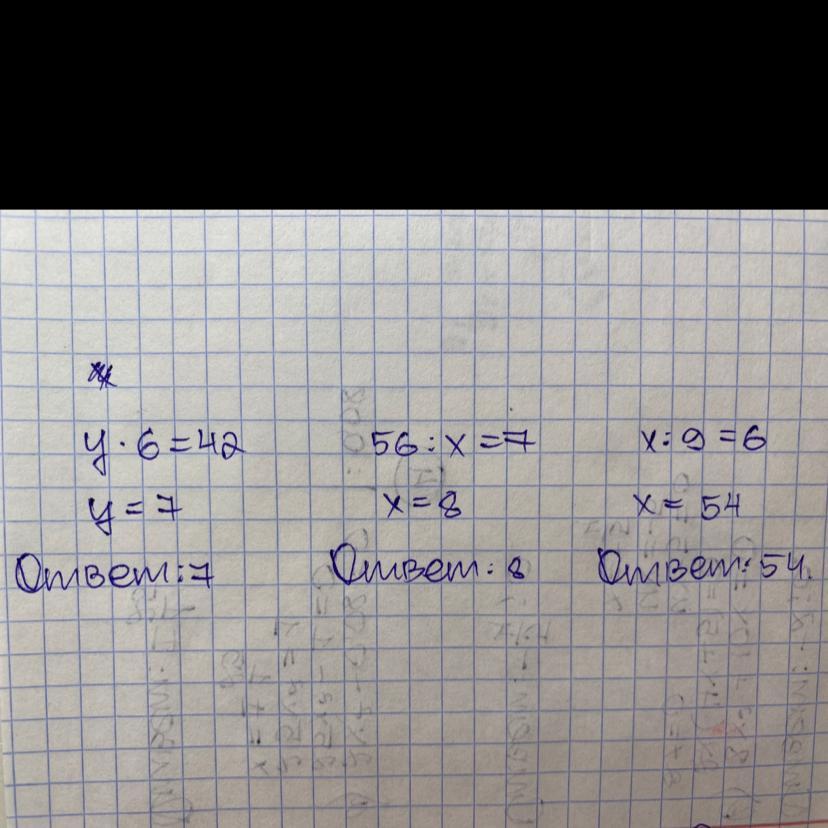 y · 6 = 42
y = 7
Ответ: 7
56 : x = 7
x = 8
Ответ: 8
x : 9 = 6
x = 54
Ответ: 54.